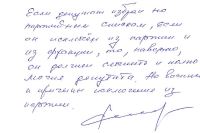 Если депутат избран по
партийным спискам, если
он исключен из партии и
из фракции, то, наверно,
он должен сложить и полно-
мочия депутата. Но
и причины исключения из
партии.